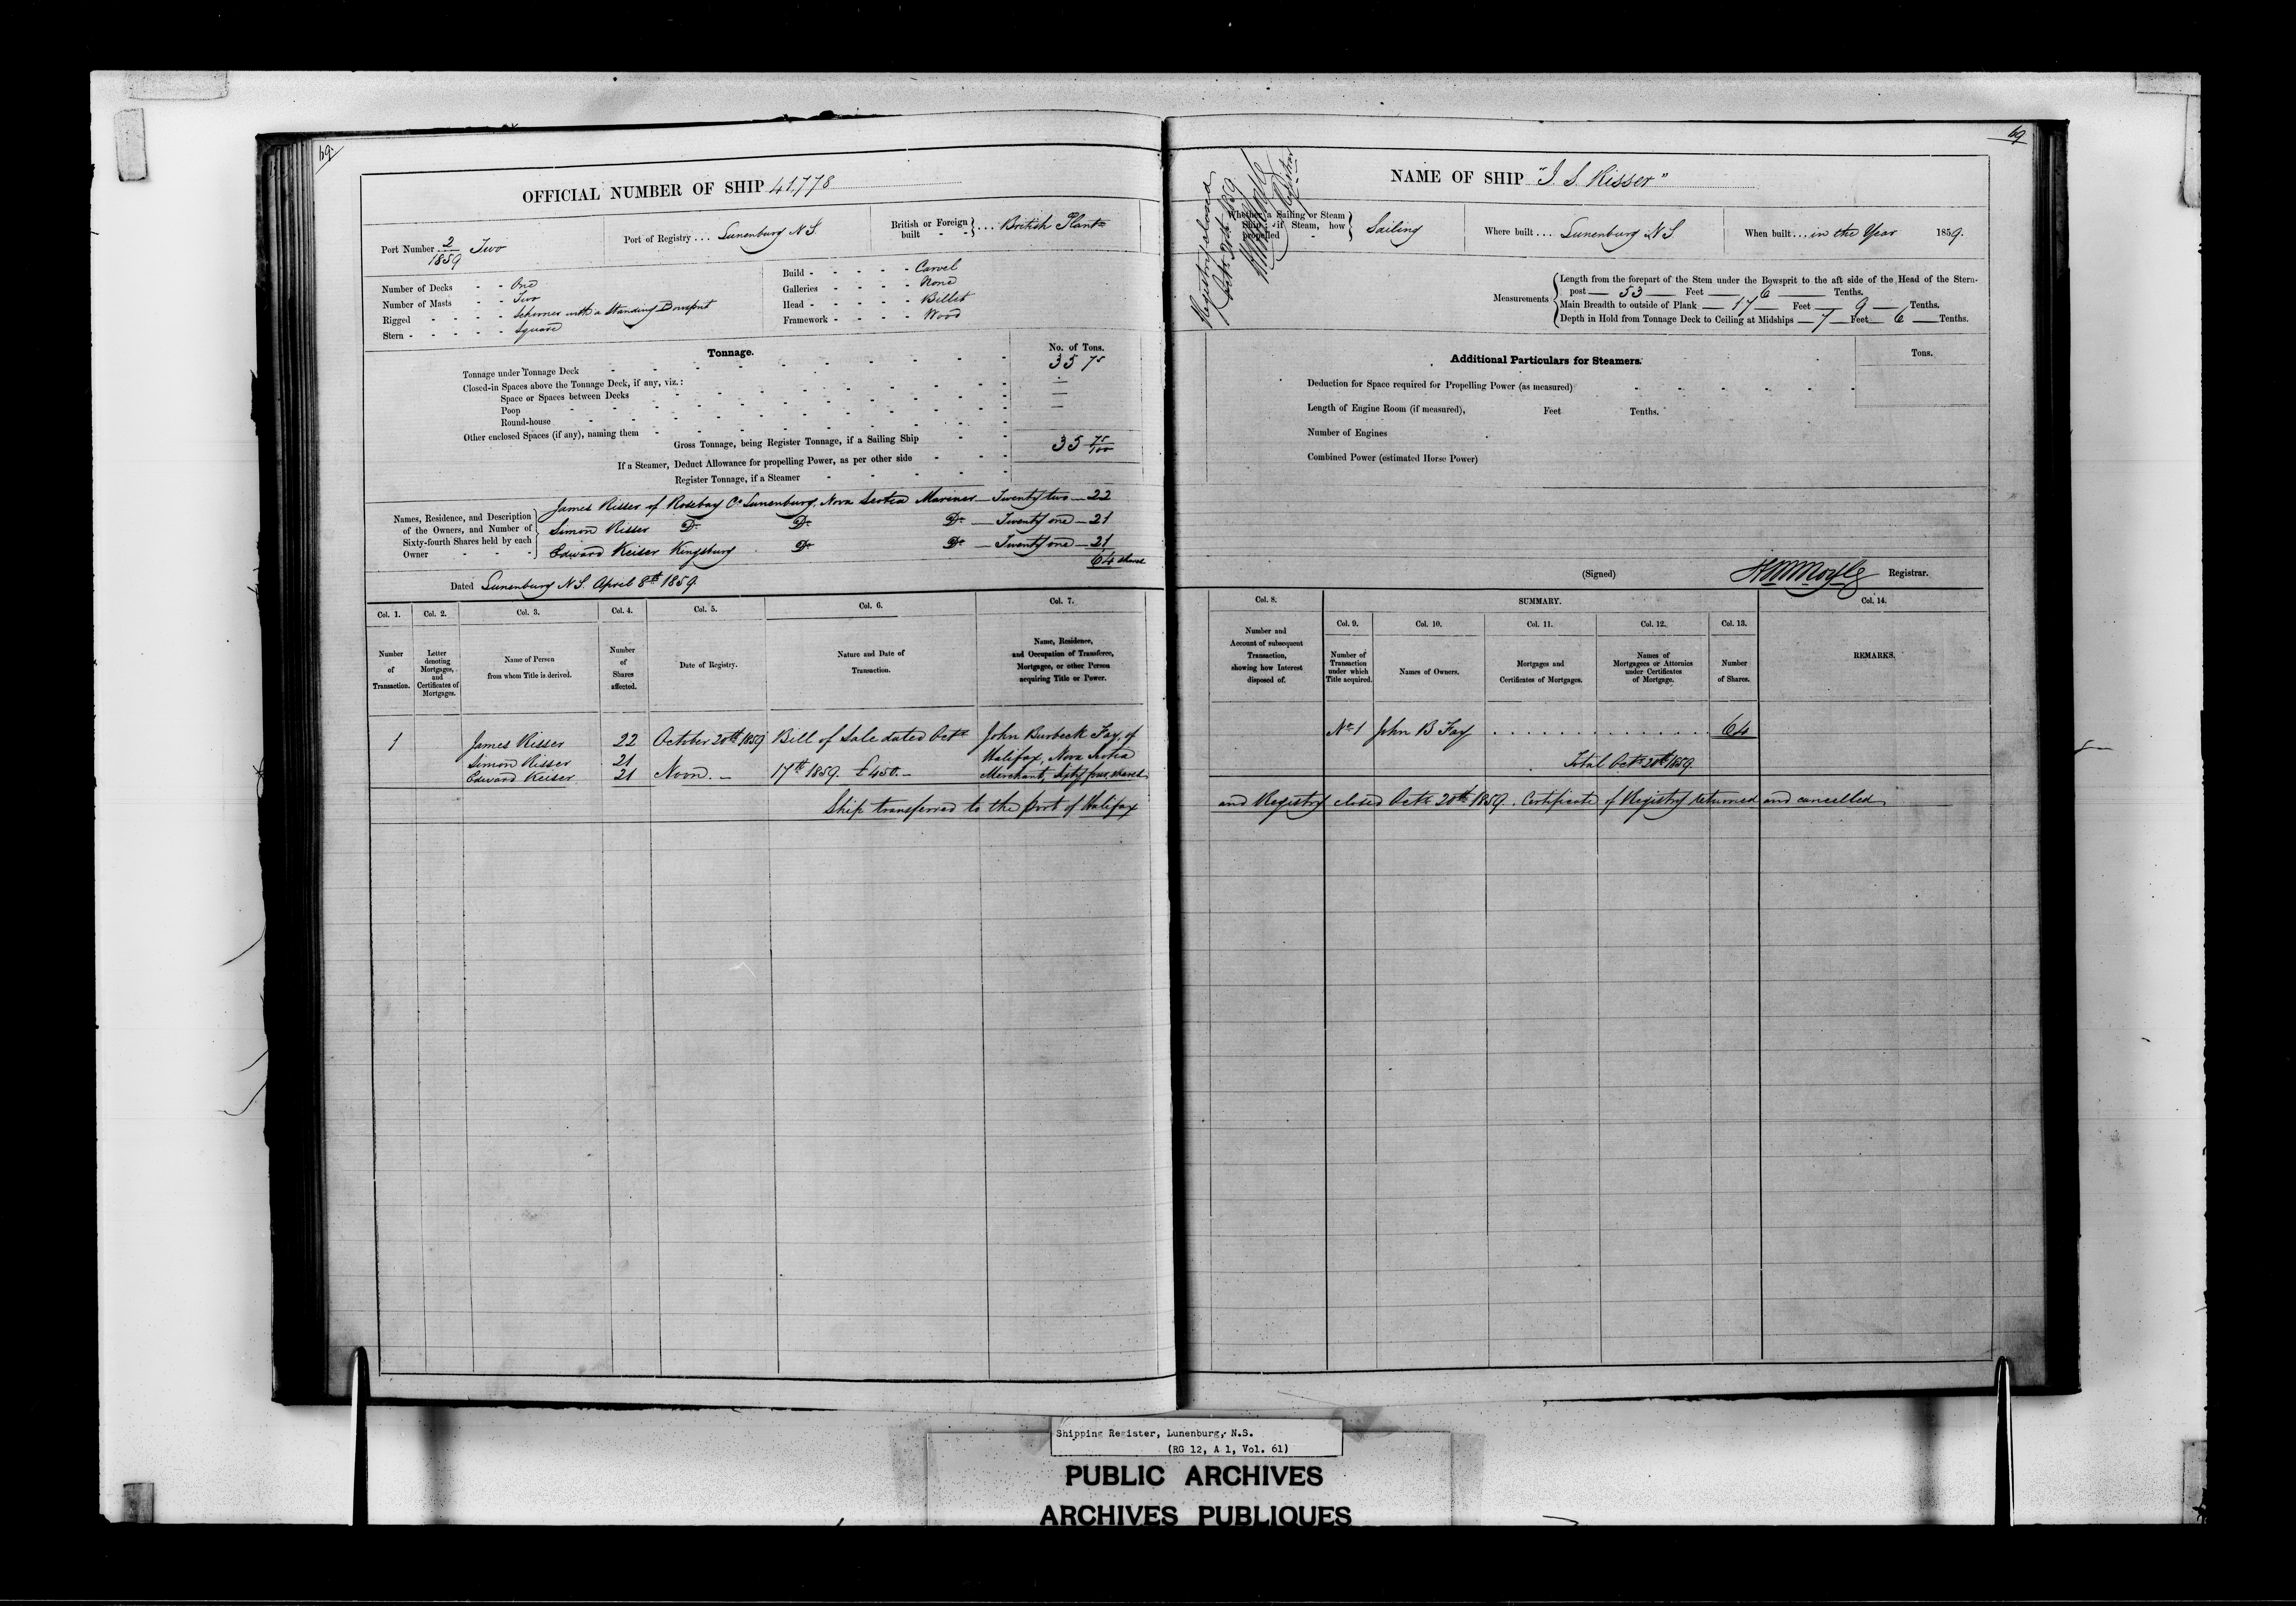 69
OFFICIAL NUMBER OF SHIP 41,778
Port Number 2/1859 Two
Port of Registry ... Lunenburg N.S.
British or Foreign built - - } ... British Plant
Number of Decks - - One
Number of Masts - - Two
Rigged - - - - Schooner with a Standing Bowsprit
Stern - - - - - Square
Build - - - - - Carvel
Galleries - - - - None
Head - - - - - Billet
Framework - - - - Wood
Tonnage.
No. of Tons.
Tonnage under Tonnage Deck 35 75
Closed-in Spaces above the Tonnage Deck, if any, viz.:
Space or Spaces between Decks —
Poop —
Round-house —
Other enclosed Spaces (if any), naming them
Gross Tonnage, being Register Tonnage, if a Sailing Ship 35 75/100
If a Steamer, Deduct Allowance for propelling Power, as per other side
Register Tonnage, if a Steamer
Names, Residence, and Description of the Owners, and Number of Sixty-fourth Shares held by each Owner
James Risser of Rosebay Co. Lunenburg, Nova Scotia Mariner — Twenty two — 22
Simon Risser Do Do Do — Twenty one — 21
Edward Keiser Kingsburg Do Do — Twenty one — 21
64 shares
Dated Lunenburg N.S. April 8th 1859
Col. 1. Col. 2. Col. 3. Col. 4. Col. 5. Col. 6. Col. 7.
Number of Transaction.
Letter denoting Mortgages, and Certificates of Mortgages.
Name of Person from whom Title is derived.
Number of Shares affected.
Date of Registry.
Nature and Date of Transaction.
Name, Residence, and Occupation of Transferee, Mortgagee, or other Person acquiring Title or Power.
1 James Risser 22 October 20th 1859 Bill of Sale dated Octr John Burbeck Fay, of
Simon Risser 21 Halifax, Nova Scotia
Edward Keiser 21 Noon. — 17th 1859. £450. — Merchant, Sixty four shares
Ship transferred to the port of Halifax
69
NAME OF SHIP "J. S. Risser"
Registry closed
Octr 20th 1859
Registrar
Whether a Sailing or Steam Ship; if Steam, how propelled - } Sailing
Where built ... Lunenburg N.S.
When built ... in the Year 1859.
Measurements
Length from the forepart of the Stem under the Bowsprit to the aft side of the Head of the Stern-
post — 53 — Feet — 6 — Tenths.
Main Breadth to outside of Plank — 17 — Feet — 9 — Tenths.
Depth in Hold from Tonnage Deck to Ceiling at Midships — 7 — Feet — 6 — Tenths.
Additional Particulars for Steamers.
Tons.
Deduction for Space required for Propelling Power (as measured)
Length of Engine Room (if measured), Feet Tenths.
Number of Engines
Combined Power (estimated Horse Power)
(Signed) Registrar.
Col. 8. SUMMARY. Col. 14.
Col. 9. Col. 10. Col. 11. Col. 12. Col. 13.
Number and Account of subsequent Transaction, showing how Interest disposed of.
Number of Transaction under which Title acquired.
Names of Owners.
Mortgages and Certificates of Mortgages.
Names of Mortgagees or Attornies under Certificates of Mortgage.
Number of Shares.
REMARKS.
No 1 John B Fay . . . . . . . . . . . . 64
Total Octr 20th 1859.
and Registry closed Octr 20th 1859. Certificate of Registry returned and cancelled
Shipping Register, Lunenburg, N.S.
(RG 12, A 1, Vol. 61)
PUBLIC ARCHIVES
ARCHIVES PUBLIQUES